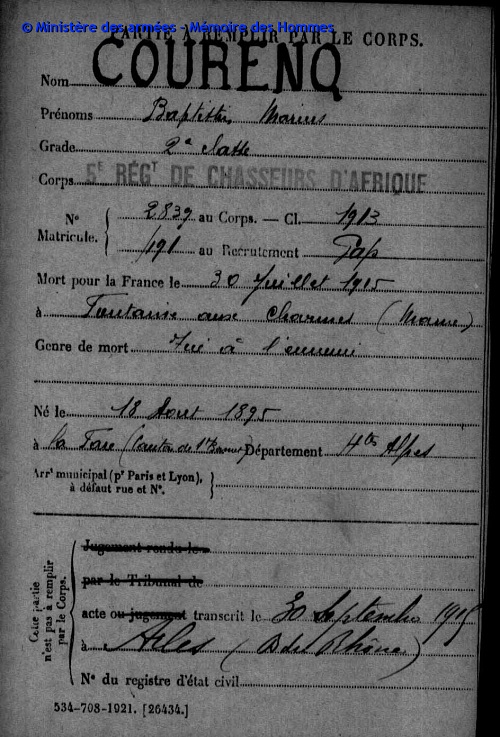 © Ministère des armées - Mémoire des Hommes
CARTE A REMPLIR PAR LE CORPS.
Nom COURENQ
Prénoms Baptistin Marius
Grade 2e classe
Corps 5E RÉGT DE CHASSEURS D'AFRIQUE
N° Matricule. { 2839 au Corps. — Cl. 1913
191 au Recrutement Gap
Mort pour la France le 30 Juillet 1915
à Fontaine aux Charmes (Marne)
Genre de mort Tué à l'ennemi
Né le 18 Aout 1895
à la Fare (Canton de St Bonnet) Département Htes Alpes
Arrt municipal (pr Paris et Lyon), à défaut rue et N°. }
Cette partie n'est pas à remplir par le Corps. {
Jugement rendu le
par le Tribunal de
acte ou jugement transcrit le 30 Septembre 1915
à Arles (B du Rhône)
N° du registre d'état civil
534-708-1921. [26434.]